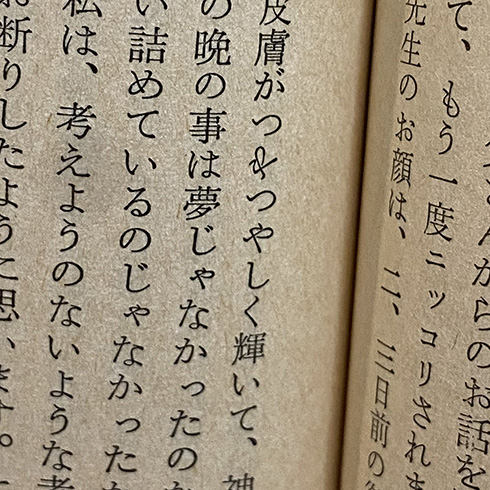 さんからのお話を
て、もう一度ニッコリされま
先生のお顔は、二、三日前の
皮膚がつやつやしく輝いて、神
の晩の事は夢じゃなかったのか
い詰めているのじゃなかった
私は、考えようのないような考
断りしたように思います。